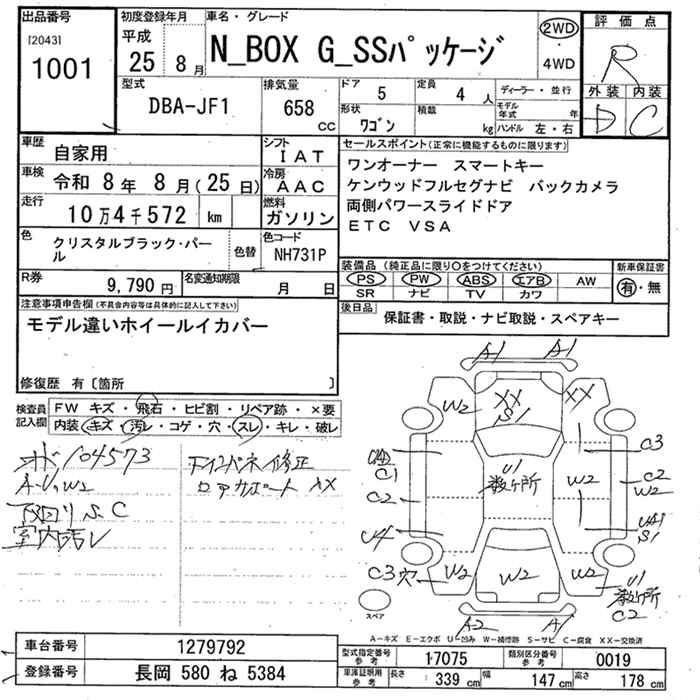 出品番号
[2043]
1001
初度登録年月
平成
25 8月
車名・グレード
N_BOX G_SSパッケージ
2WD
・
4WD
評価点
R
外装 内装
D C
型式
DBA-JF1
排気量
658 cc
ドア
5
定員
4 人
形状
ワゴン
積載
kg
ディーラー・並行
モデル年式 年
ハンドル 左・右
車歴
自家用
シフト
IAT
車検
令和 8年 8月(25日)
冷房
AAC
走行
10万4千572 km
燃料
ガソリン
色
クリスタルブラック・パール
色替
色コード
NH731P
R券
9,790 円
名変通知期限
月 日
セールスポイント(正常に機能するものに限ります)
ワンオーナー スマートキー
ケンウッドフルセグナビ バックカメラ
両側パワースライドドア
ETC VSA
装備品(純正品に限り○をつけてください)
PS PW ABS エアB AW
SR ナビ TV カワ
新車保証書
有・無
後日品
保証書・取説・ナビ取説・スペアキー
注意事項申告欄(不具合内容等は具体的に記入して下さい)
モデル違いホイールイカバー
修復歴 有〔箇所 〕
検査員記入欄
FW キズ・飛石・ヒビ割・リペア跡・×要
内装・キズ・汚レ・コゲ・穴・スレ・キレ・破レ
104573
A・U・W2
下回りS.C
室内汚レ
XX
A1 A1
W2 XX S1 XX
C1
C2
U4
C3穴
W2
U1
数ヶ所
W2
C3
C2
W2
S1
W2 W2 W2
U1
数ヶ所
C2
A2 A1
スペア
A-キズ E-エクボ U-凹み W-補修跡 S-サビ C-腐食 XX-交換済
車台番号
1279792
登録番号
長岡 580 ね 5384
型式指定番号
参考
17075
類別区分番号
参考
0019
車庫証明用
参考
長さ 339 cm
幅 147 cm
高さ 178 cm